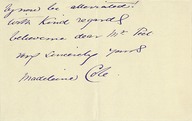 by now be alleviated.
With kind regards
believe me dear Mr Peel
very sincerely yours
Madeleine Cole